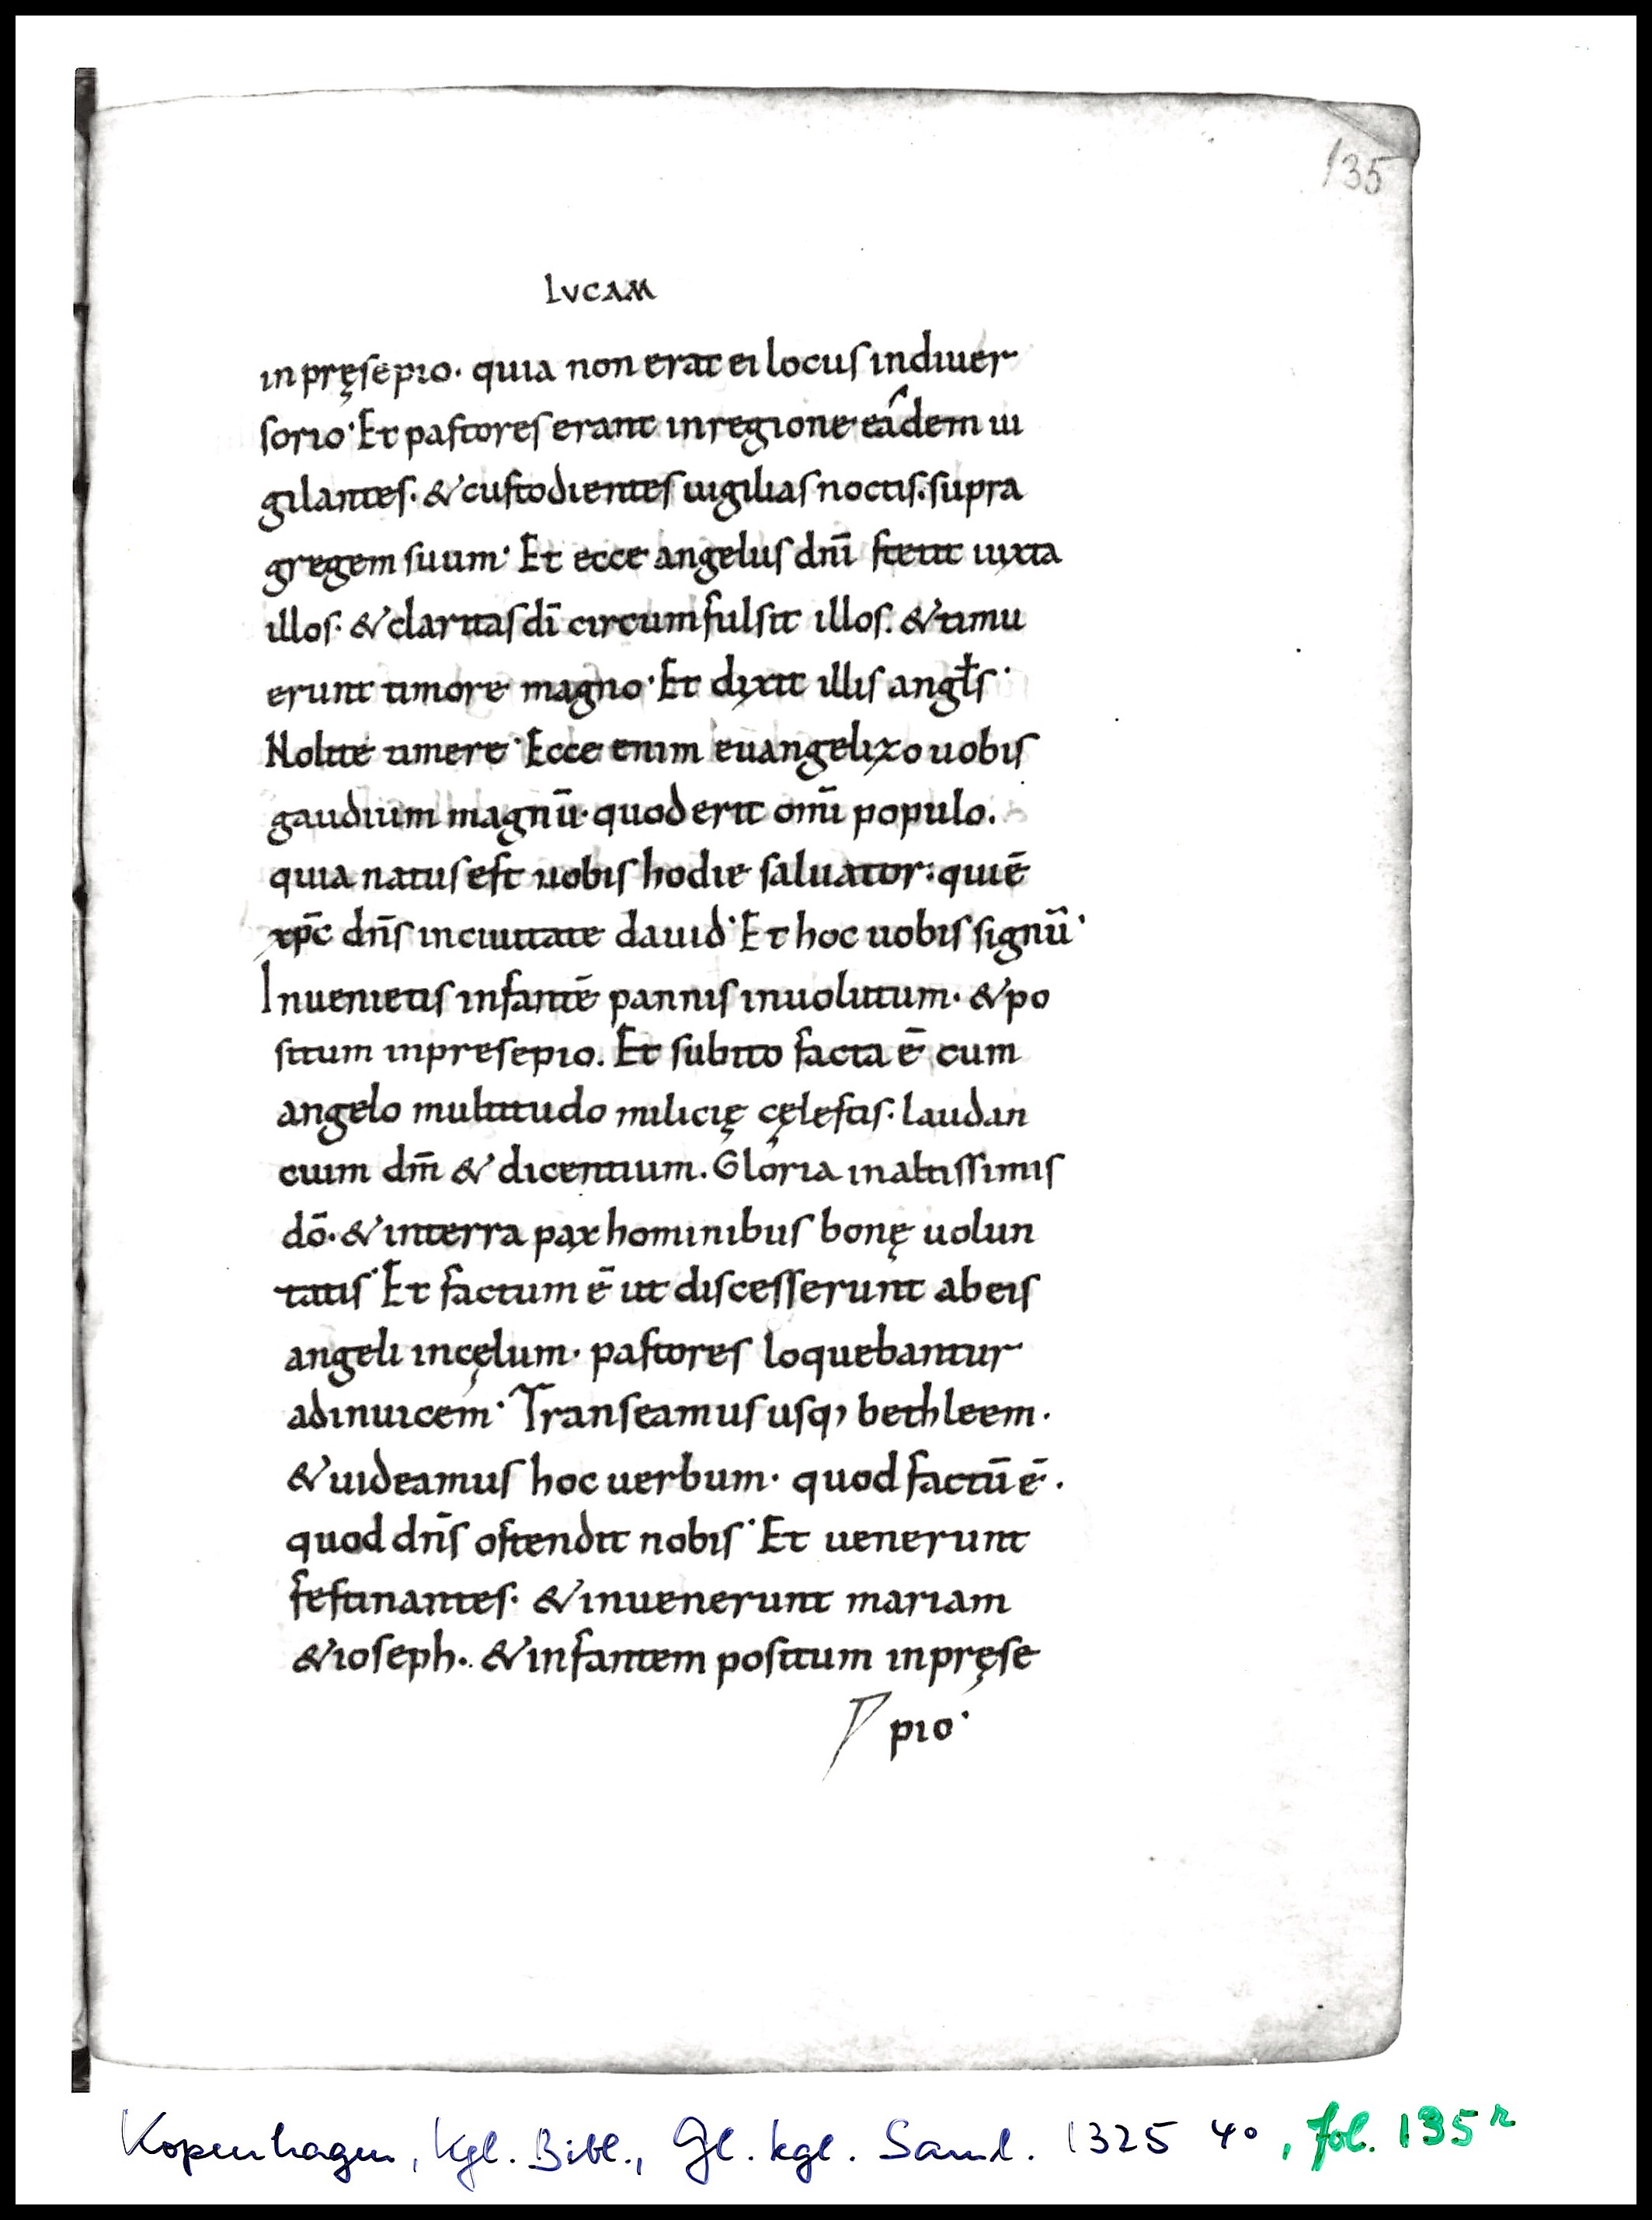 135
LVCAM
in pręsepio· quia non erat ei locus in diuer
sorio· Et pastores erant in regione eadem ui
gilantes· & custodientes uigilias noctis· supra
gregem suum· Et ecce angelus dnī stetit iuxta
illos· & claritas dī circumfulsit illos. & timu
erunt timore magno· Et dixit illis angłs·
Nolite timere· Ecce enim euangelizo uobis
gaudium magnū· quod erit omī populo.
quia natus est uobis hodie saluator: qui ē
xp̄c dn̄s in ciuitate dauid· Et hoc uobis signū·
Inuenietis infantē pannis inuolutum· & po
situm in presepio. Et subito facta ē cum
angelo multitudo milicię cęlestis· laudan
cium dm̄ & dicentium. Gloria in altissimis
dō· & in terra pax hominibus bonę uolun
tatis· Et factum ē ut discesserunt ab eis
angeli in cęlum· pastores loquebantur
ad inuicem· Transeamus usq, bethleem·
& uideamus hoc uerbum· quod factū ē·
quod dn̄s ostendit nobis· Et uenerunt
festinantes· & inuenerunt mariam
& ioseph·. & infantem positum in pręse
pio·
Kopenhagen, Kgl. Bibl., Gl. kgl. Saml. 1325 4°, fol. 135r